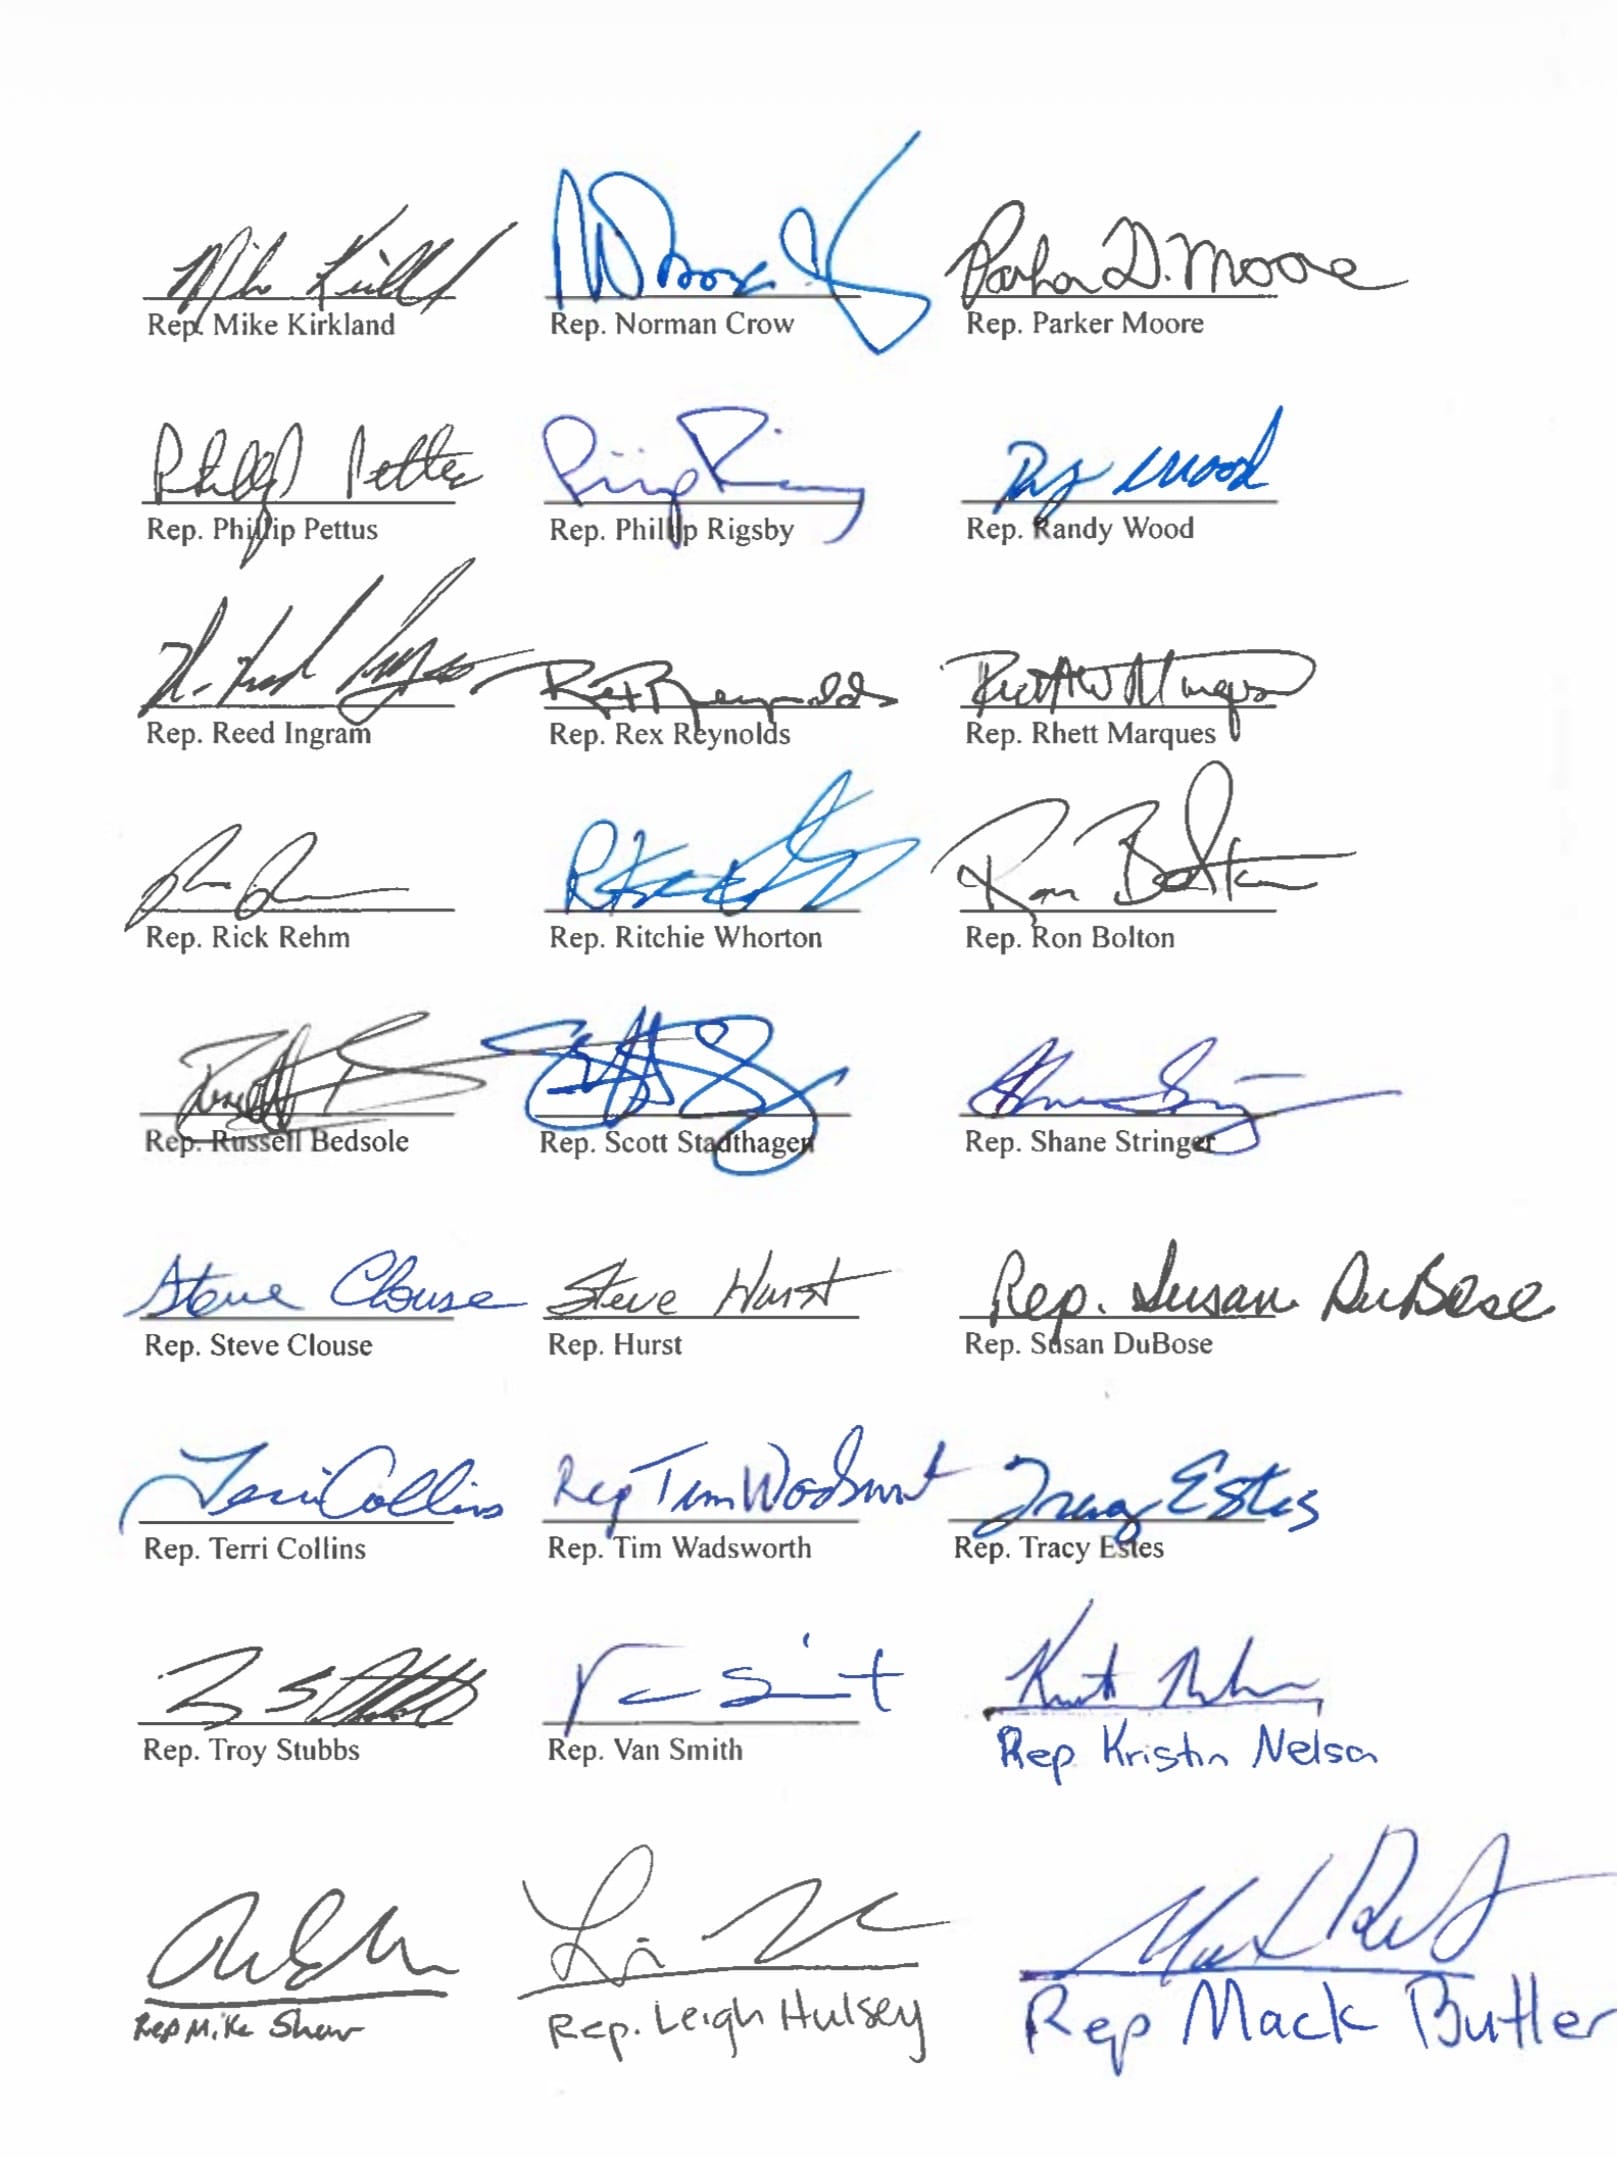 Mike Kirkland
Rep. Mike Kirkland
Rep. Norman Crow
Parker D. Moore
Rep. Parker Moore
Phillip Pettus
Rep. Phillip Pettus
Rep. Phillip Rigsby
Randy Wood
Rep. Randy Wood
Rep. Reed Ingram
Rex Reynolds
Rep. Rex Reynolds
Rep. Rhett Marques
Rep. Rick Rehm
Rep. Ritchie Whorton
Ron Bolton
Rep. Ron Bolton
Rep. Russell Bedsole
Rep. Scott Stadthagen
Rep. Shane Stringer
Steve Clouse
Rep. Steve Clouse
Steve Hurst
Rep. Hurst
Rep. Susan DuBose
Rep. Susan DuBose
Terri Collins
Rep. Terri Collins
Rep Tim Wadsworth
Rep. Tim Wadsworth
Tracy Estes
Rep. Tracy Estes
Rep. Troy Stubbs
Rep. Van Smith
Rep Kristin Nelson
Rep Mike Shaw
Rep. Leigh Hulsey
Rep Mack Butler